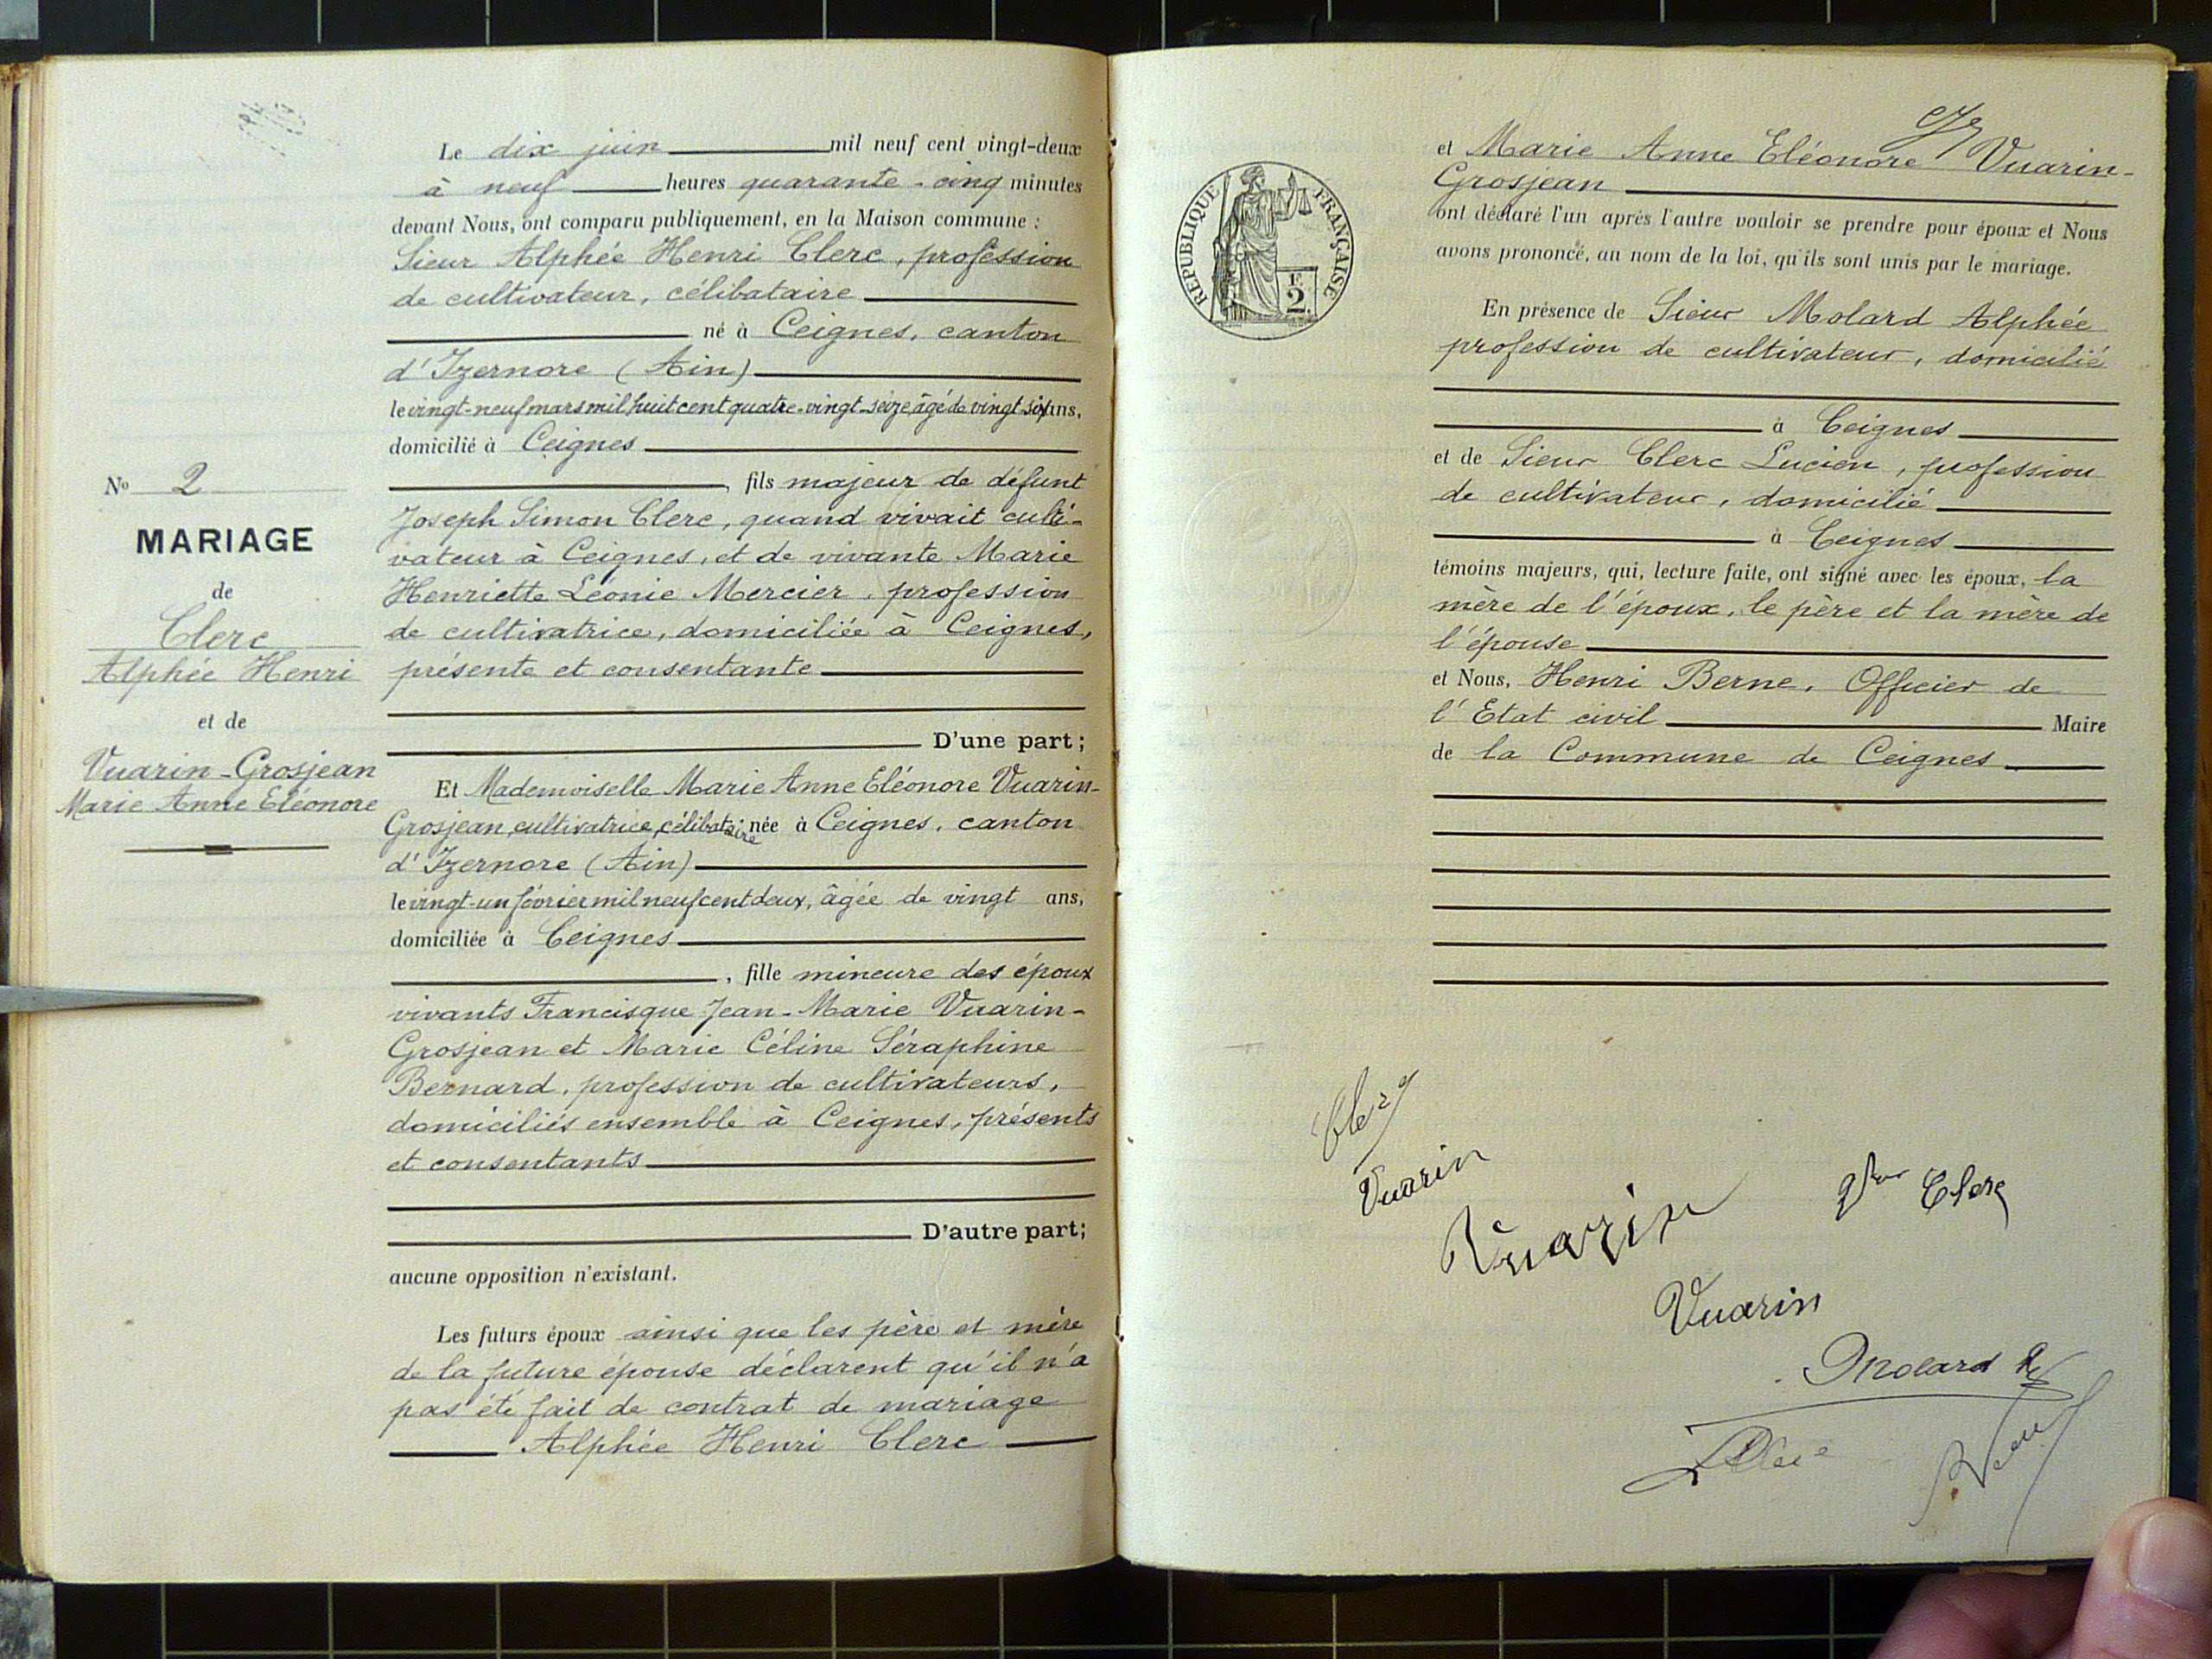 Le dix juin mil neuf cent vingt-deux
à neuf heures quarante-cinq minutes
devant Nous, ont comparu publiquement, en la Maison commune :
Sieur Alphée Henri Clerc, profession
de cultivateur, célibataire
né à Ceignes, canton
d'Izernore (Ain)
le vingt-neuf mars mil huit cent quatre-vingt-seize, âgé de vingt-six ans,
domicilié à Ceignes
, fils majeur de défunt
Joseph Simon Clerc, quand vivait culti-
vateur à Ceignes, et de vivante Marie
Henriette Léonie Mercier, profession
de cultivatrice, domiciliée à Ceignes,
présente et consentante
D'une part ;
Et Mademoiselle Marie Anne Eléonore Vuarin-
Grosjean, cultivatrice, célibataire née à Ceignes, canton
d'Izernore (Ain)
le vingt-un février mil neuf cent deux, âgée de vingt ans,
domiciliée à Ceignes
, fille mineure des époux
vivants Francisque Jean-Marie Vuarin-
Grosjean et Marie Céline Séraphine
Bernard, profession de cultivateurs,
domiciliés ensemble à Ceignes, présents
et consentants
D'autre part ;
aucune opposition n'existant.
Les futurs époux ainsi que les père et mère
de la future épouse déclarent qu'il n'a
pas été fait de contrat de mariage
Alphée Henri Clerc
No 2
MARIAGE
de
Clerc
Alphée Henri
et de
Vuarin-Grosjean
Marie Anne Eléonore
RÉPUBLIQUE FRANÇAISE
2 F
et Marie Anne Eléonore Vuarin-
Grosjean
ont déclaré l'un après l'autre vouloir se prendre pour époux et Nous
avons prononcé, au nom de la loi, qu'ils sont unis par le mariage.
En présence de Sieur Molard Alphée
profession de cultivateur, domicilié
à Ceignes
et de Sieur Clerc Lucien, profession
de cultivateur, domicilié
à Ceignes
témoins majeurs, qui, lecture faite, ont signé avec les époux, la
mère de l'époux, le père et la mère de
l'épouse
et Nous, Henri Berne, Officier de
l'Etat civil Maire
de la Commune de Ceignes
Clerc
Vuarin
Vuarin
Clerc
Vuarin
Molard